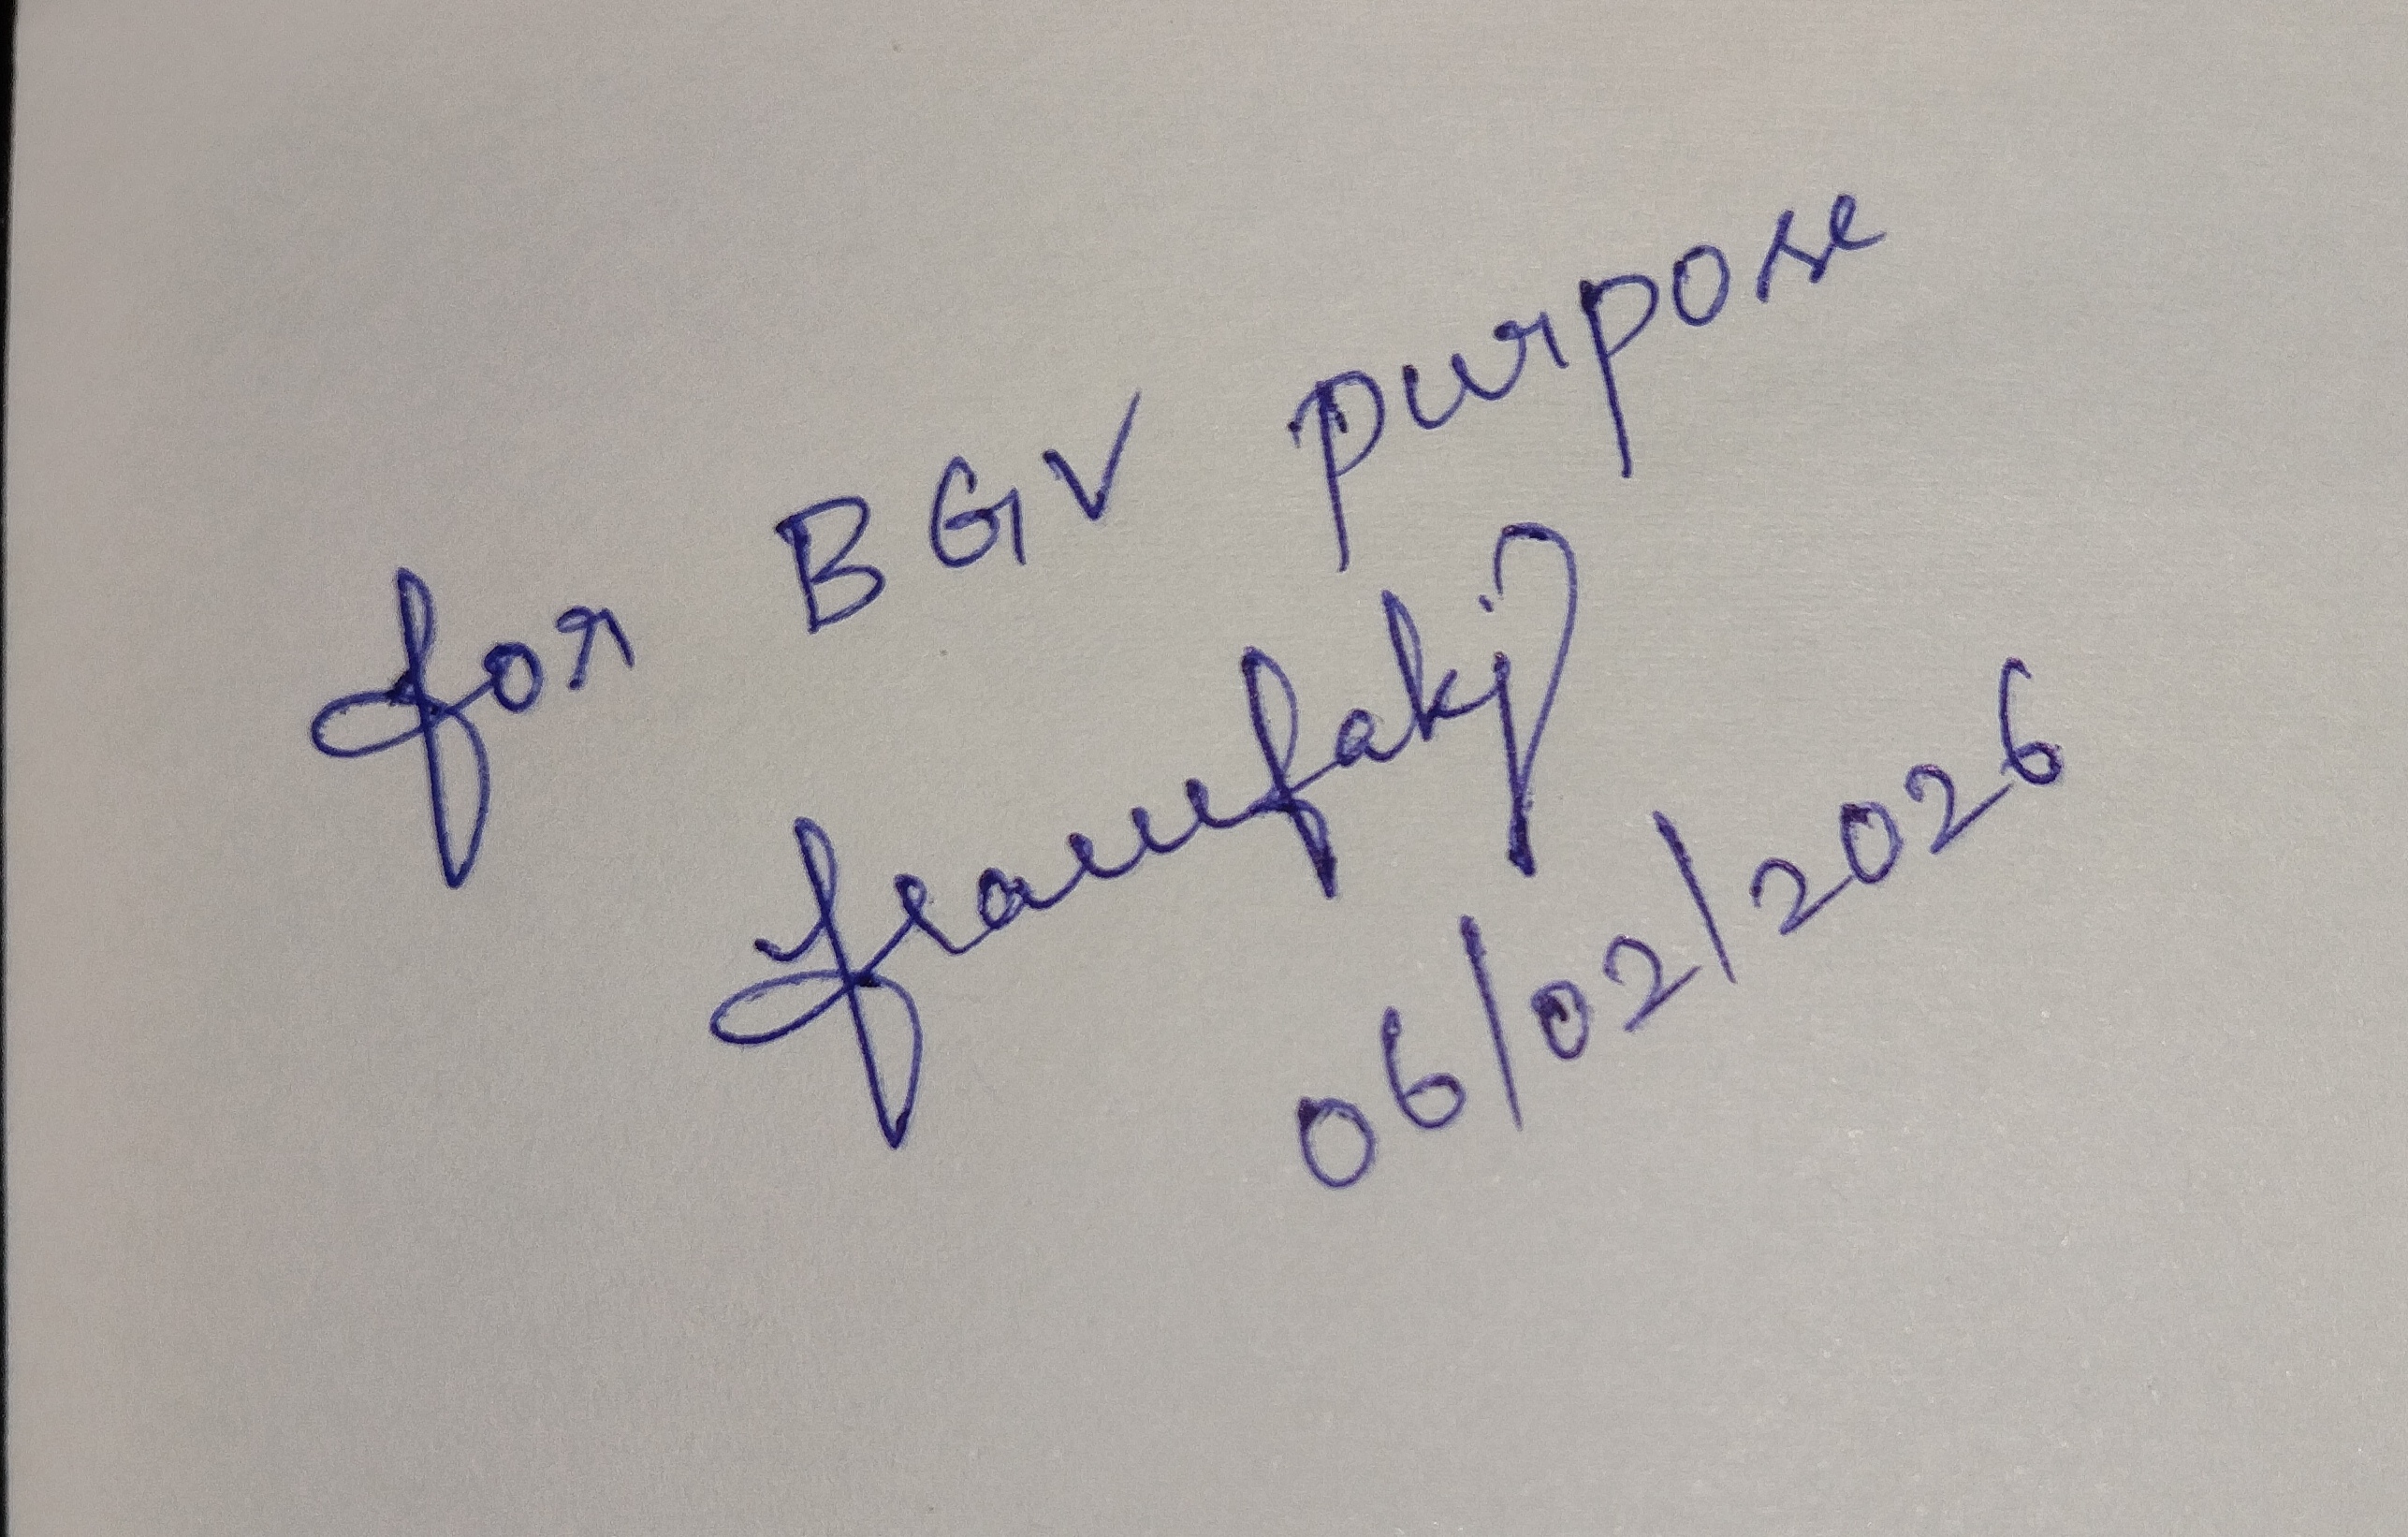 for BGV purpose
06/02/2026